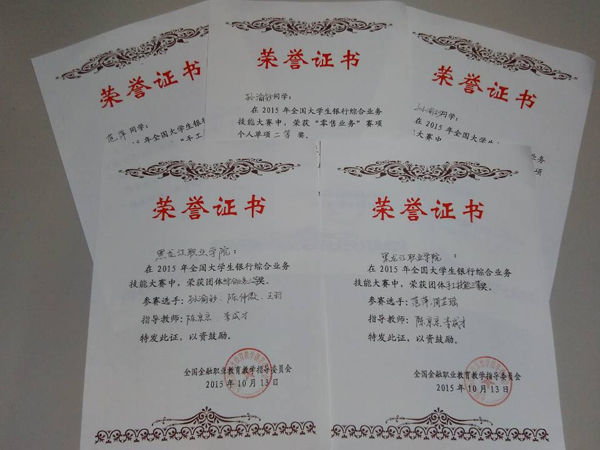 荣誉证书
范萍同学:
年全国大学生银行
"手工
荣誉证书
孙渝钞同学:
在 2015 年全国大学生银行综合业务
技能大赛中，荣获"零售业务"赛项
个人单项二等奖。
荣誉证书
同学:
在 2015 年全国大学生
业务
大赛中
项
荣誉证书
黑龙江职业学院:
在 2015 年全国大学生银行综合业务
技能大赛中，荣获团体 奖。
参赛选手: 孙渝钞、陈 、王羽
指导教师: 陈京京、李成才
特发此证，以资鼓励。
全国金融职业教育教学指导委员会
2015 年 10 月 13 日
荣誉证书
黑龙江职业学院:
在 2015 年全国大学生银行综合业务
技能大赛中，荣获团体 奖。
参赛选手: 范萍、
指导教师: 陈京京、李成才
特发此证，以资鼓励。
全国金融职业教育教学指导委员会
2015 年 10 月 13 日